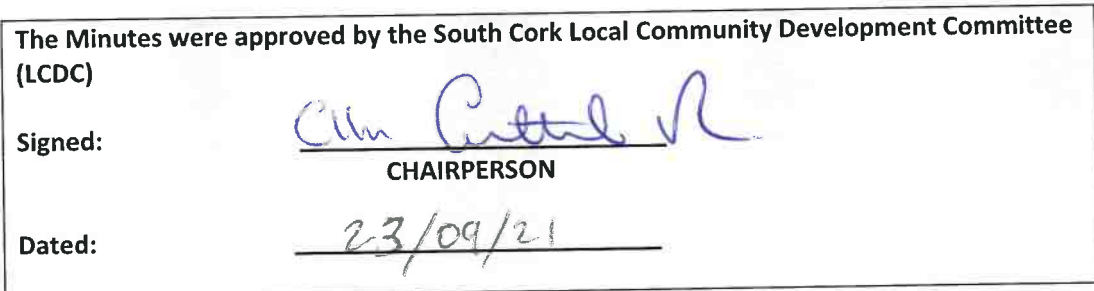 The Minutes were approved by the South Cork Local Community Development Committee
(LCDC)
Signed:
CHAIRPERSON
Dated: 23/09/21